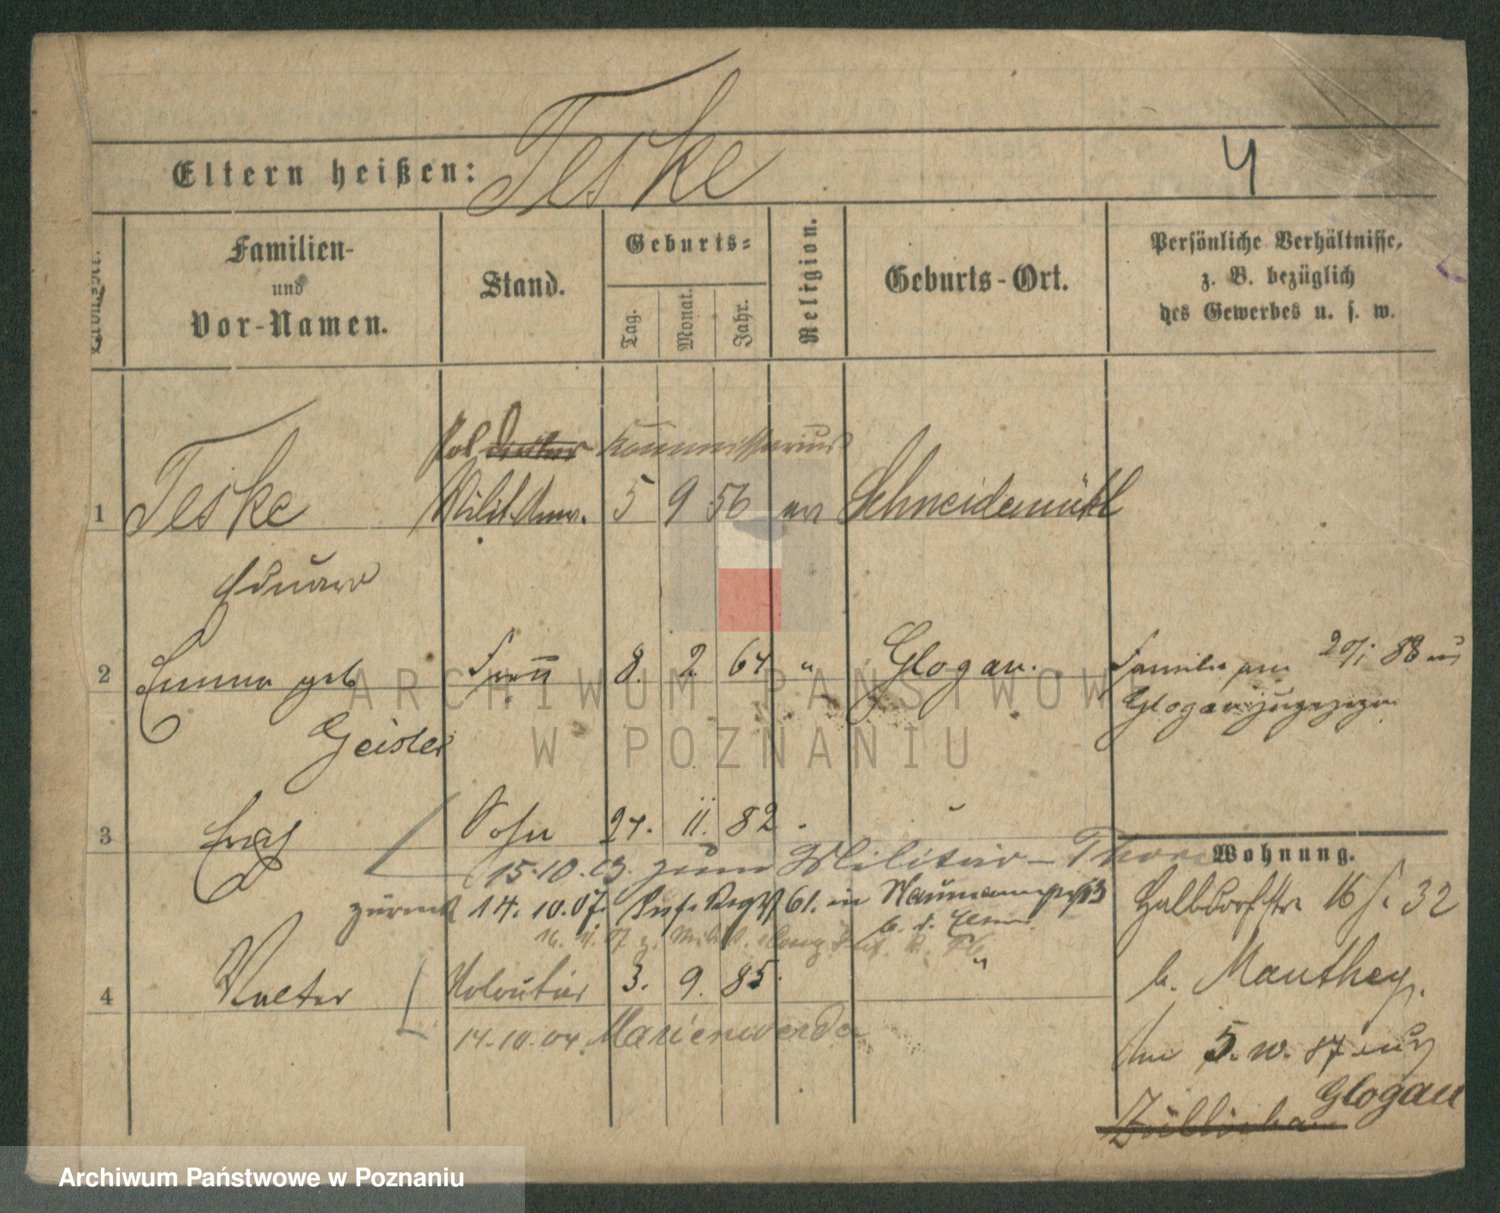 Eltern heißen: Teske 4
Laufende Nr.
Familien- und Vor-Namen.
Stand.
Geburts-
Tag. Monat. Jahr.
Religion.
Geburts-Ort.
Persönliche Verhältnisse,
z. B. bezüglich
des Gewerbes u. s. w.
Pol Kommissarius
1 Teske Milit. Anw. 5 9 56 ev Schneidemühl
Eduard
2 Emma geb Frau 8. 2 64 " Glogau. Familie am 20/1 88 aus
Geisler Glogau zugezogen
3 Sohn 24. 11. 82
15.10.03. zum Militär-Thorn
Wohnung.
zurück 14.10.07. Inf. Regt 61. in Naumann
Halbdorfstr 16 32
4 Walter Volontär 3. 9. 85. "
b. Manthey.
14.10.04. Marienwerder
Am 5. 87 aus
Glogau
Züllichau
ARCHIWUM PAŃSTWOWE
W POZNANIU
Archiwum Państwowe w Poznaniu